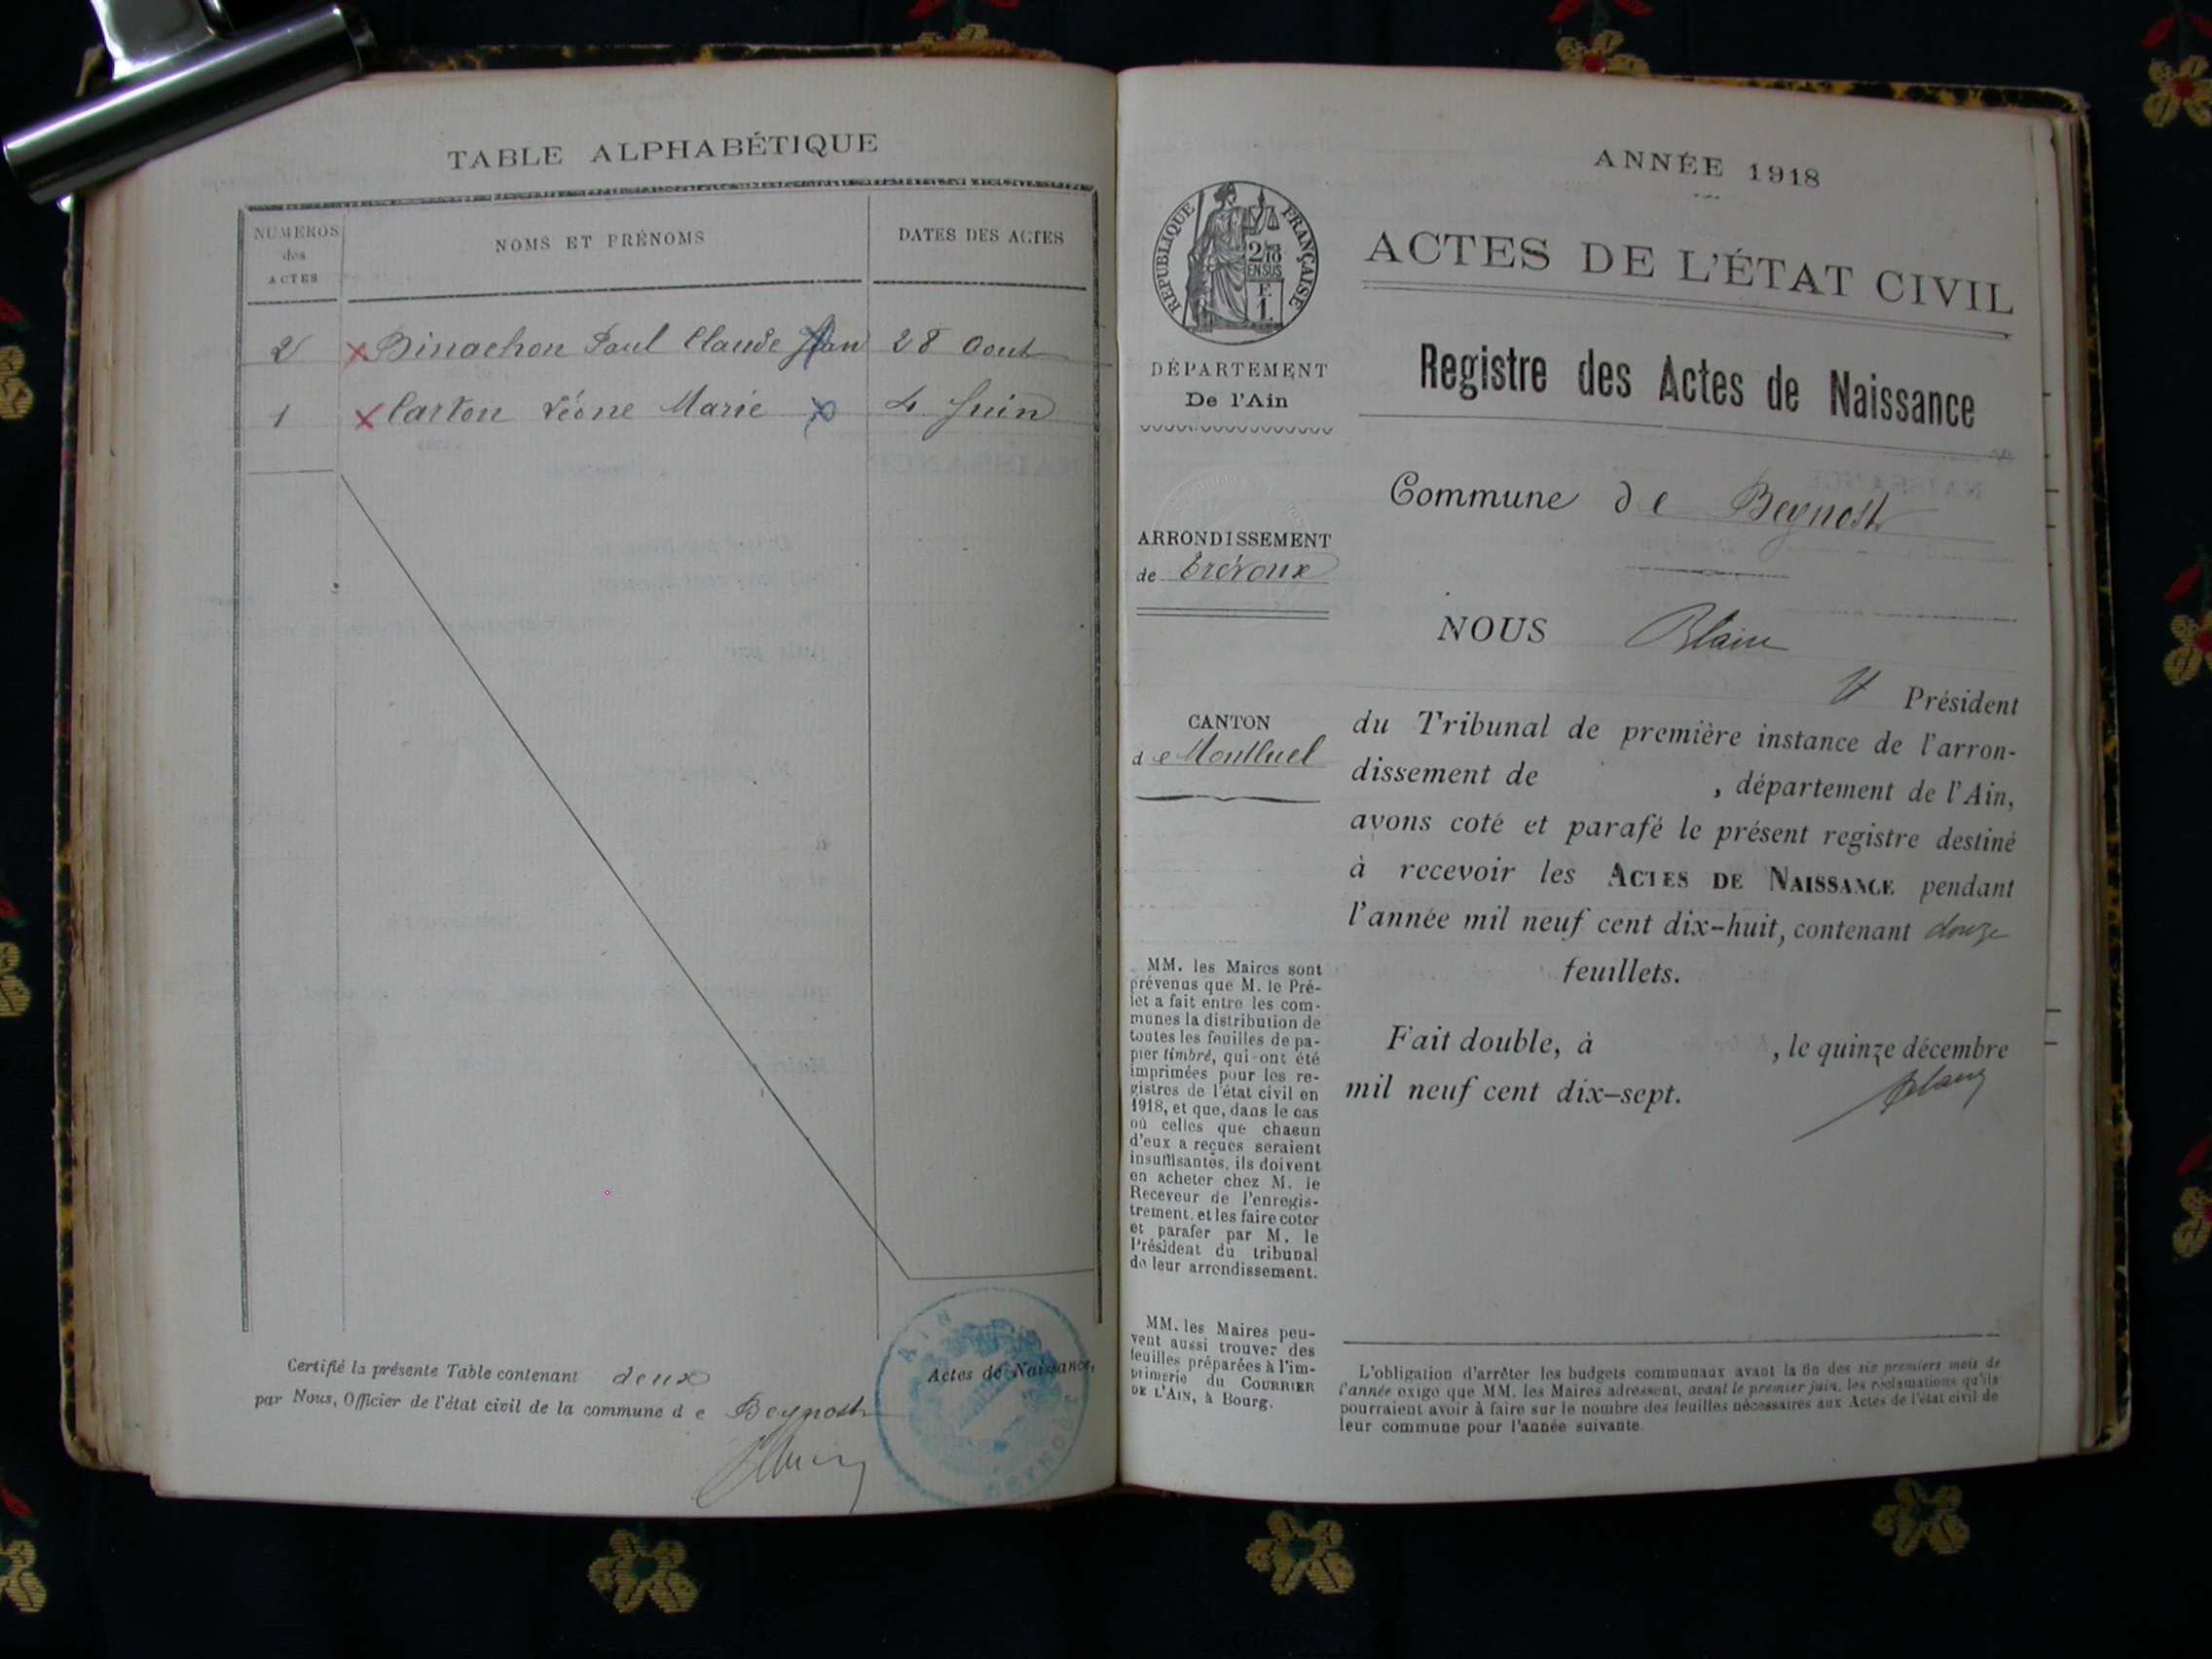 TABLE ALPHABÉTIQUE
NUMÉROS
des
ACTES
NOMS ET PRÉNOMS
DATES DES ACTES
2 Binachon Paul Claude Jean 28 Aout
1 Carton Léone Marie 4 Juin
Certifié la présente Table contenant deux Actes de Naissance,
par Nous, Officier de l'état civil de la commune de Beynost
AIN
BEYNOST
ANNÉE 1918
RÉPUBLIQUE FRANÇAISE
2/10
EN SUS
F.
1.
ACTES DE L'ÉTAT CIVIL
Registre des Actes de Naissance
DÉPARTEMENT
De l'Ain
Commune de Beynost
ARRONDISSEMENT
de Trévoux
NOUS
Président
CANTON
de Montluel
du Tribunal de première instance de l'arron-
dissement de , département de l'Ain,
avons coté et parafé le présent registre destiné
à recevoir les ACTES DE NAISSANCE pendant
l'année mil neuf cent dix-huit, contenant douze
feuillets.
Fait double, à , le quinze décembre
mil neuf cent dix-sept.
MM. les Maires sont
prévenus que M. le Pré-
fet a fait entre les com-
munes la distribution de
toutes les feuilles de pa-
pier timbré, qui ont été
imprimées pour les re-
gistres de l'état civil en
1918, et que, dans le cas
où celles que chacun
d'eux a reçues seraient
insuffisantes, ils doivent
en acheter chez M. le
Receveur de l'enregis-
trement, et les faire coter
et parafer par M. le
Président du tribunal
de leur arrondissement.
MM. les Maires peu-
vent aussi trouver des
feuilles préparées à l'im-
primerie du COURRIER
DE L'AIN, à Bourg.
L'obligation d'arrêter les budgets communaux avant la fin des six premiers mois de
l'année exige que MM. les Maires adressent, avant le premier juin, les réclamations qu'ils
pourraient avoir à faire sur le nombre des feuilles nécessaires aux Actes de l'état civil de
leur commune pour l'année suivante.